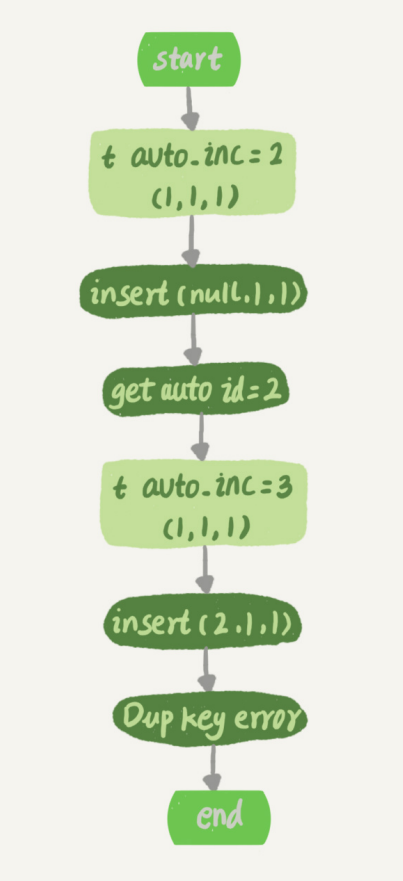 start
t auto_inc=2
(1,1,1)
insert(null,1,1)
get auto id=2
t auto_inc=3
(1,1,1)
insert(2,1,1)
Dup key error
end